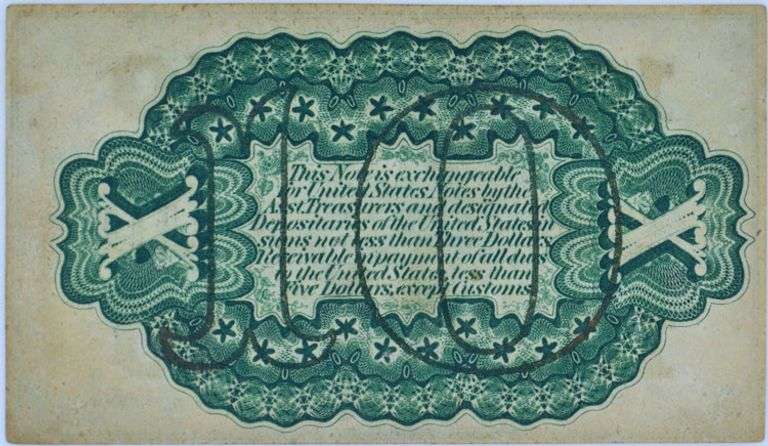 This Note is exchangeable
for United States Notes by the
Ass't Treasurers and designated
Depositaries of the United States in
sums not less than Three Dollars
receivable in payment of all dues
to the United States less than
Five Dollars, except Customs.
X 10 X